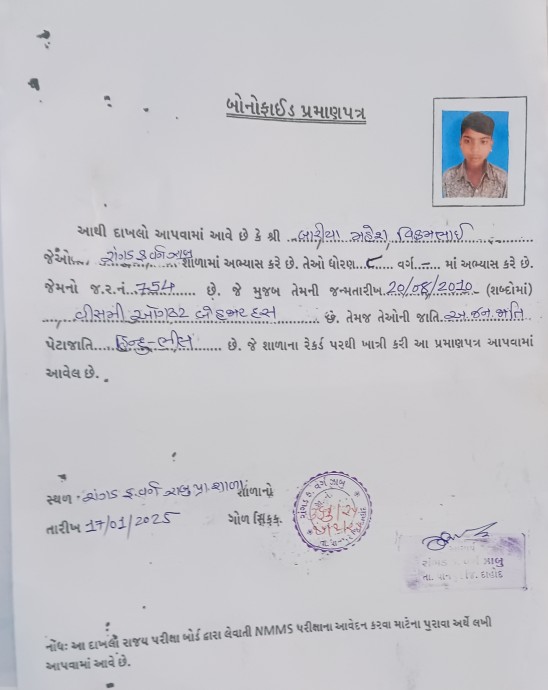 બોનોફાઈડ પ્રમાણપત્ર
આથી દાખલો આપવામાં આવે છે કે શ્રી ..બારીયા મહેશ વિક્રમભાઈ
જેઓ.... રાંગડ ફ.વર્ગ ગ્રાબુ શાળામાં અભ્યાસ કરે છે. તેઓ ધોરણ...૮..... વર્ગ.–... માં અભ્યાસ કરે છે.
જેમનો જ.ર.નં...754...... છે. જે મુજબ તેમની જન્મતારીખ 20/08/2010 (શબ્દોમાં)
વીસમી ઓગષ્ટ બે હજાર દસ છે. તેમજ તેઓની જાતિ..અ.જન.જાતિ
પેટાજાતિ....હિન્દુ-ભીલ........ છે. જે શાળાના રેકર્ડ પરથી ખાત્રી કરી આ પ્રમાણપત્ર આપવામાં
આવેલ છે.
સ્થળ - ફ.વર્ગ પ્રા.શાળા શાળાનો
તારીખ 17/01/2025 ગોળ સિક્કો
દાહોદ
નોંધઃ આ દાખલો રાજ્ય પરીક્ષા બોર્ડ દ્વારા લેવાતી NMMS પરીક્ષાના આવેદન કરવા માટેના પુરાવા અર્થે લખી
આપવામાં આવે છે.